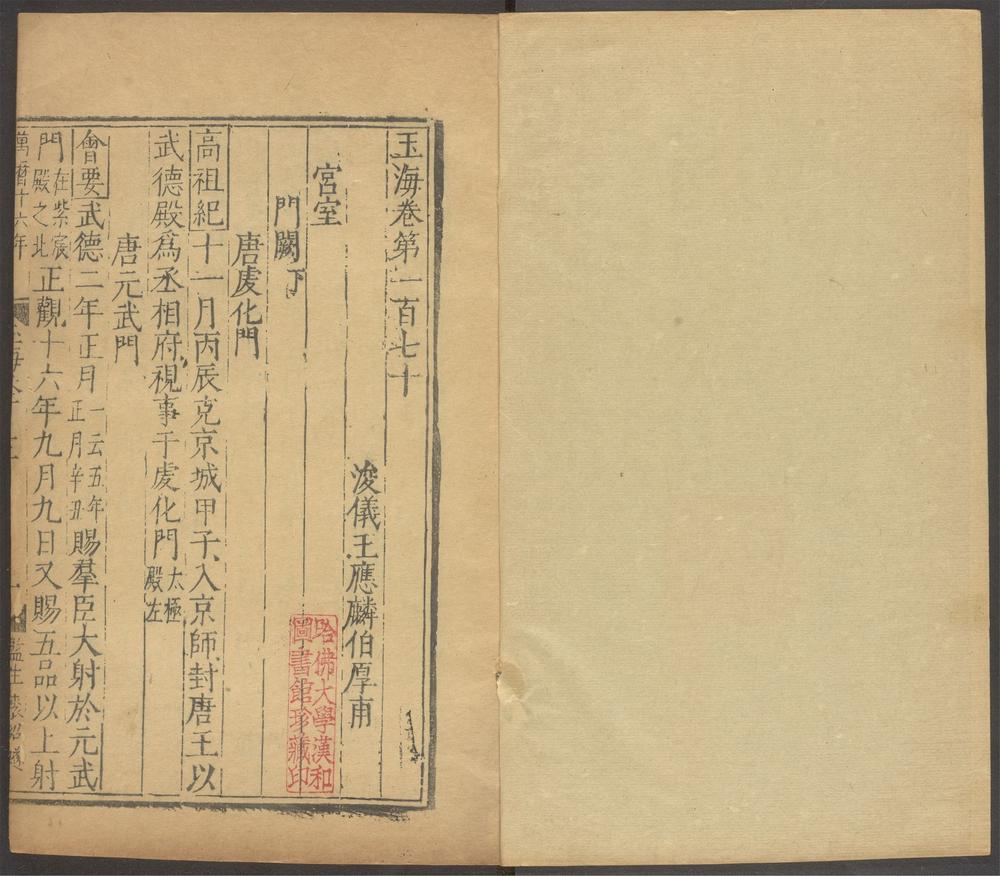 玉海卷第一百七十
浚儀王應麟伯厚甫
宮室
門闕下
唐䖏化門
高祖紀十一月丙辰克京城甲子入京師封唐王以
武德殿爲丞相府視事于䖏化門太極殿左
唐元武門
會要武德二年正月一云五年正月辛丑賜羣臣大射於元武
門在紫宸殿之北正觀十六年九月九日又賜五品以上射
萬曆十六年
監生
哈佛大學漢和
圖書館珍藏印